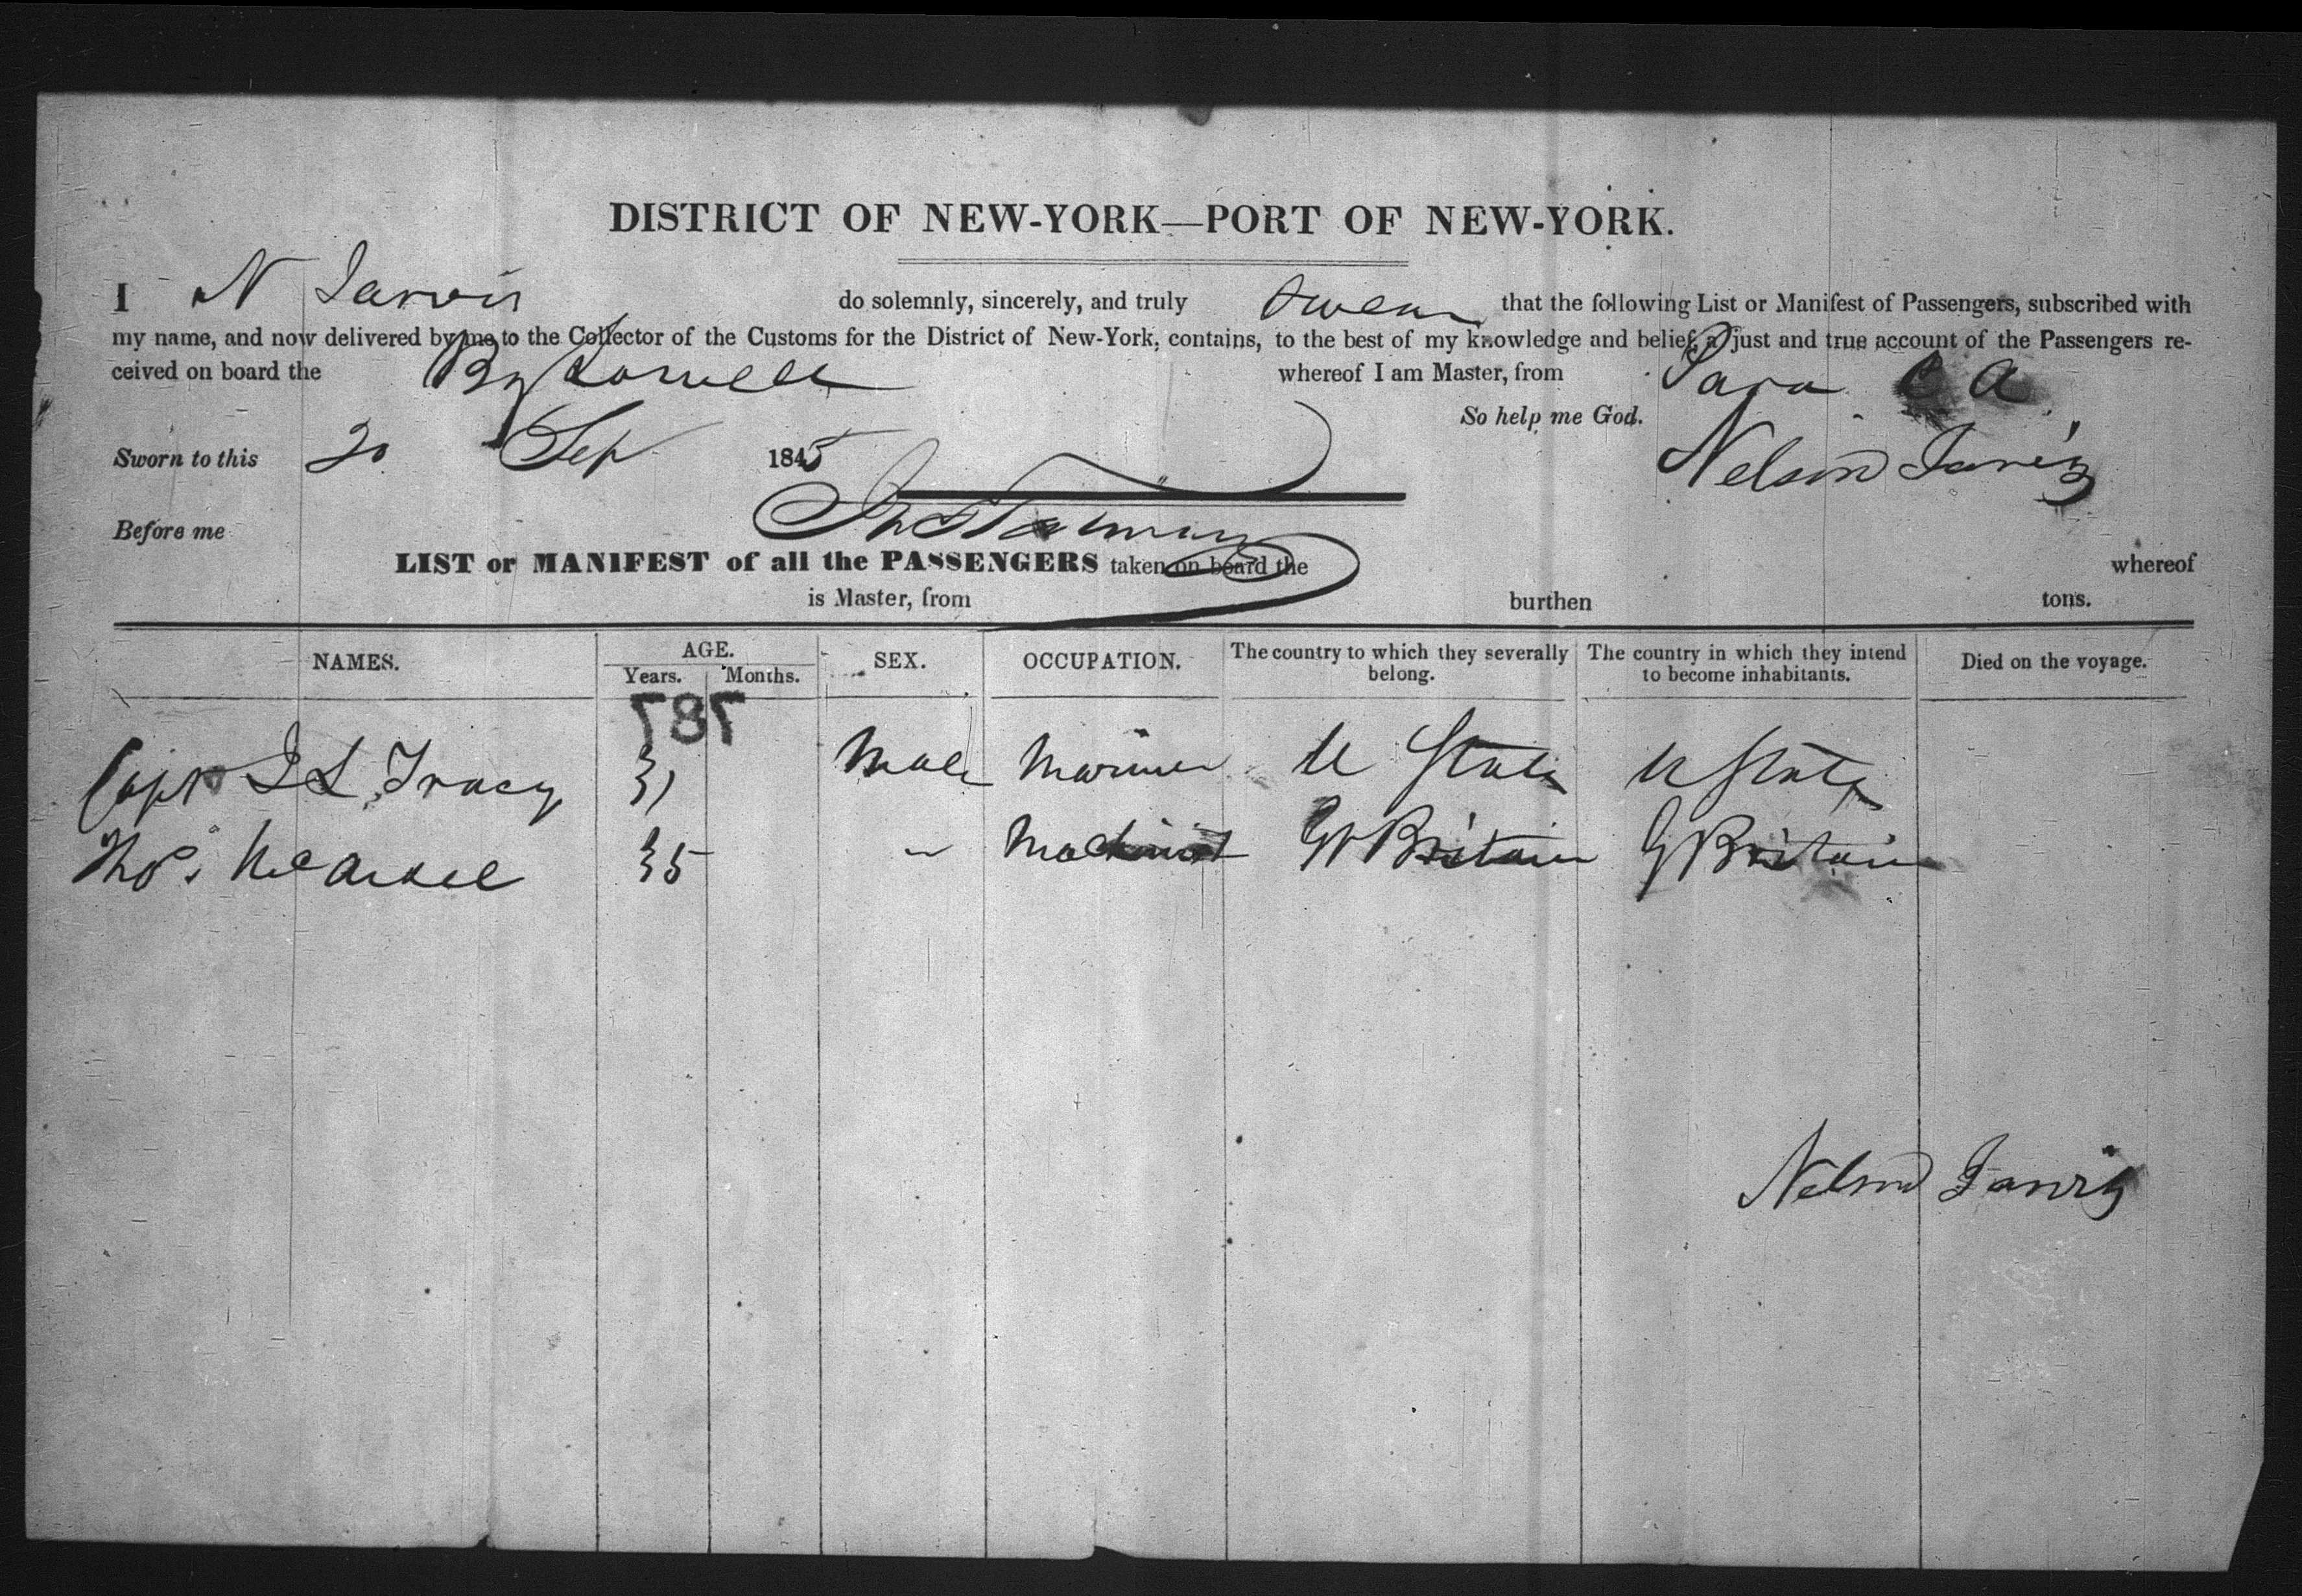 DISTRICT OF NEW-YORK—PORT OF NEW-YORK.
I N Jarvis do solemnly, sincerely, and truly swear that the following List or Manifest of Passengers, subscribed with
my name, and now delivered by me to the Collector of the Customs for the District of New-York, contains, to the best of my knowledge and belief, a just and true account of the Passengers re-
ceived on board the Bg Lowell whereof I am Master, from Para
So help me God.
Sworn to this 20 Sep 1845 Nelson Jarvis
Before me
LIST or MANIFEST of all the PASSENGERS taken on board the whereof
is Master, from burthen tons.
NAMES. AGE. SEX. OCCUPATION. The country to which they severally belong. The country in which they intend to become inhabitants. Died on the voyage.
Years. Months.
787
Capt J L Tracy 31 Male Mariner U States U States
Thos 35 Machinist Gt Britain G Britain
Nelson Jarvis